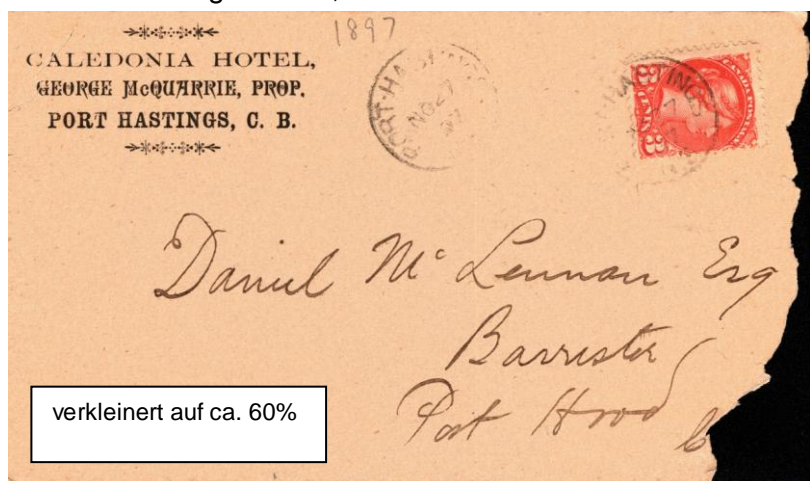 1897
CALEDONIA HOTEL,
GEORGE McQUARRIE, PROP.
PORT HASTINGS, C. B.
PORT HASTINGS
NO 27
97
HASTINGS
CANADA POSTAGE
3
3
Daniel Mc Lennan Esq
Barrister
Port Hood
verkleinert auf ca. 60%